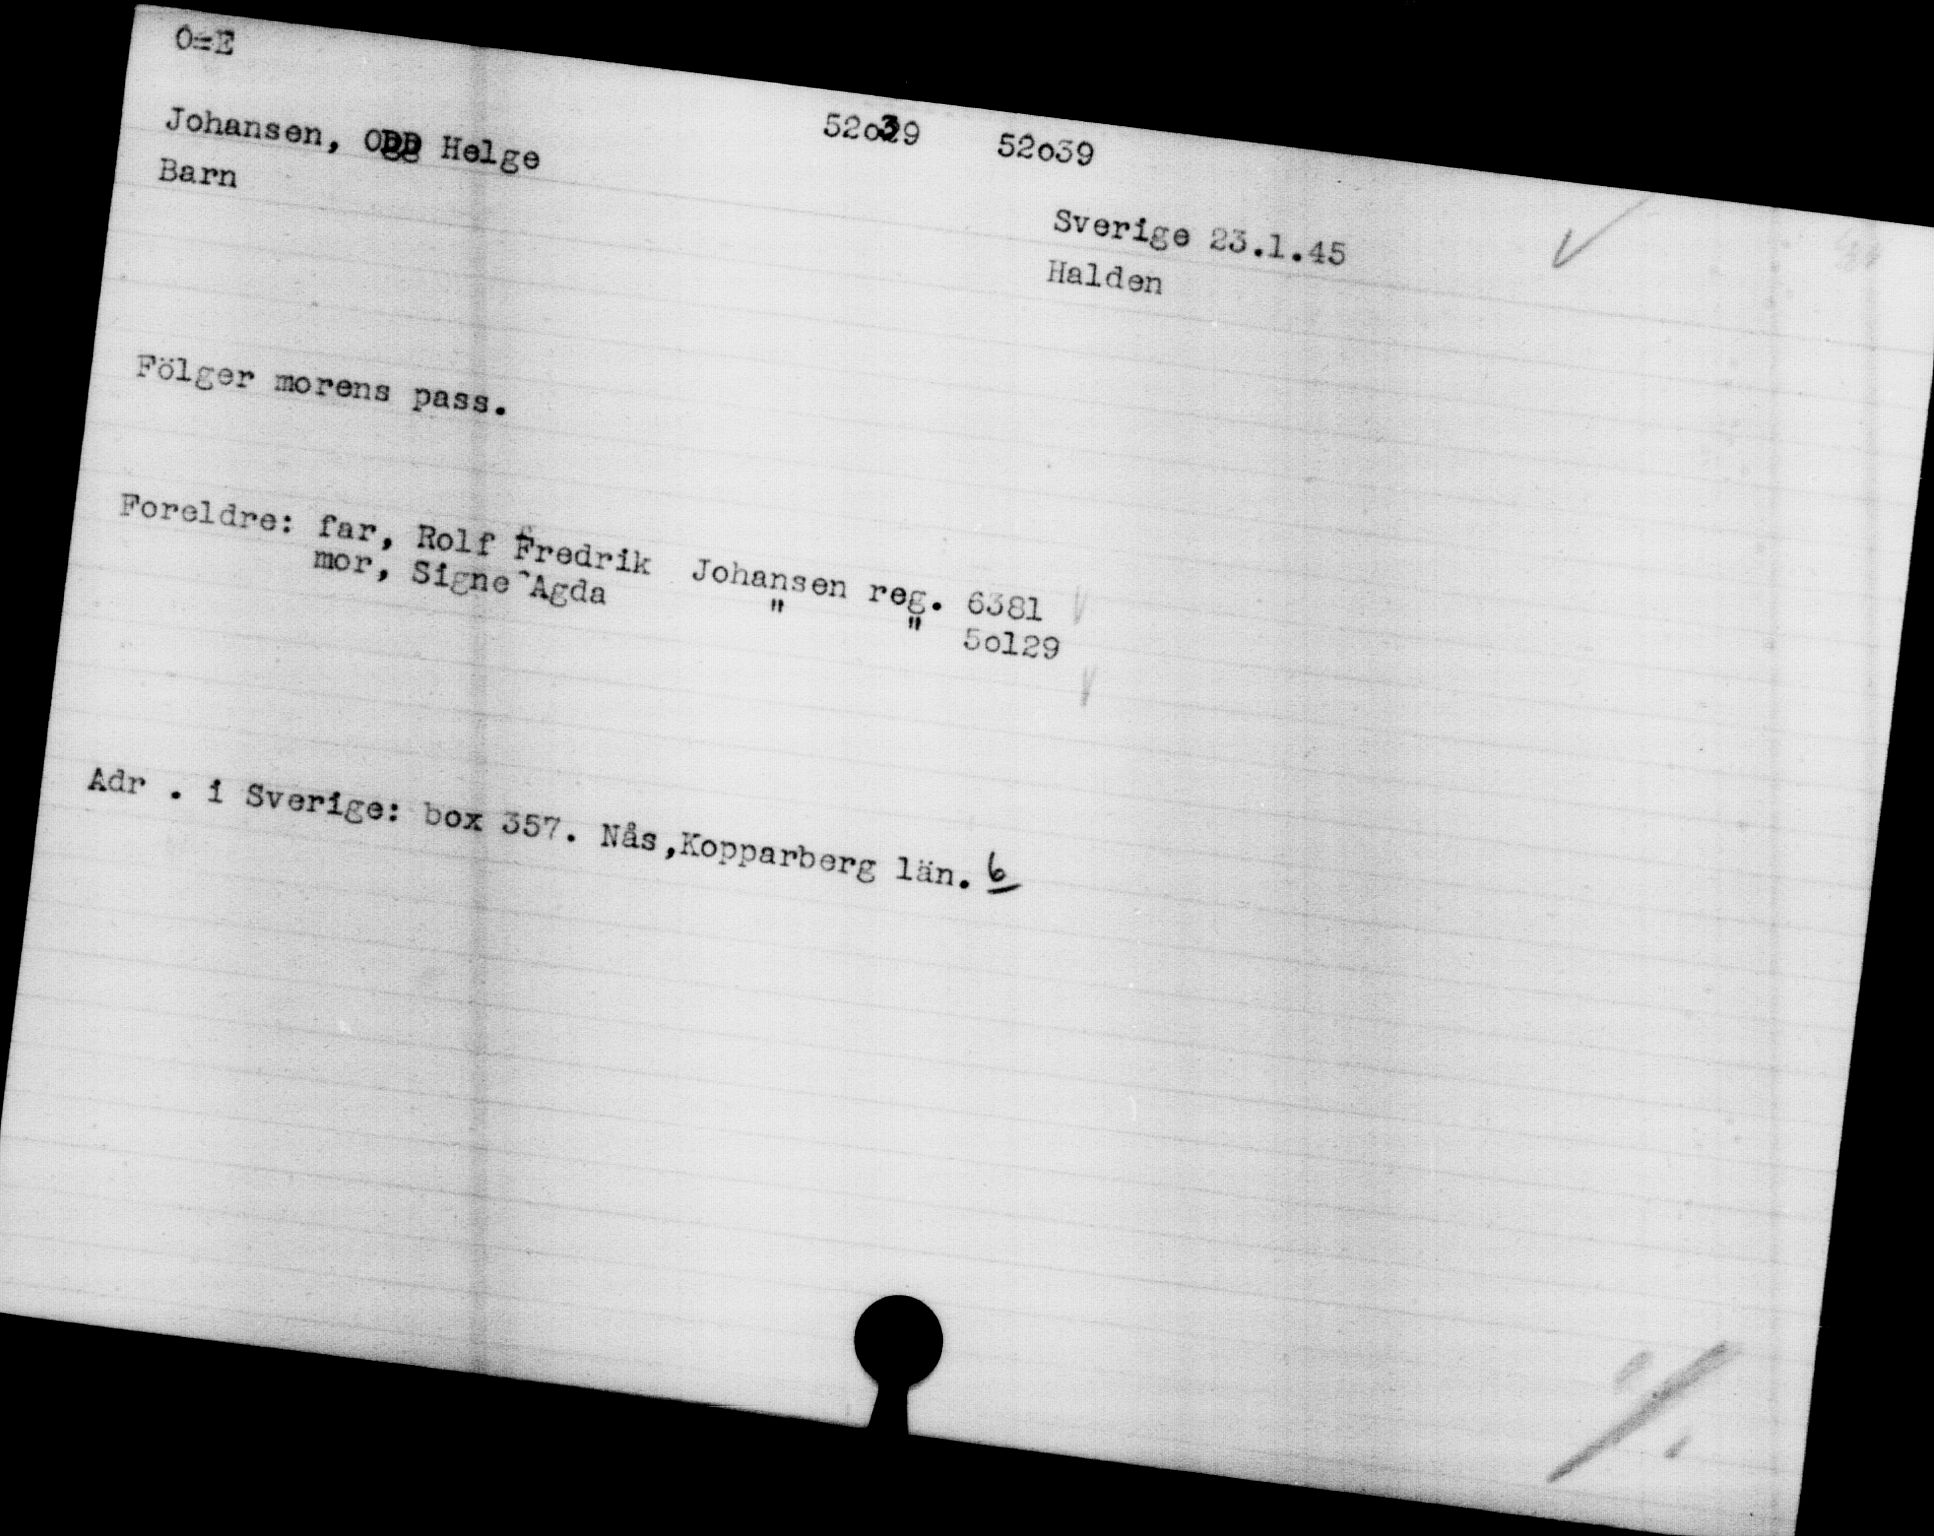 O=E
Johansen, ODD Helge 52o39 52o39
Barn
Sverige 23.1.45
Halden
Fölger morens pass.
Foreldre: far, Rolf Fredrik Johansen reg. 6381
mor, Signe Agda " " 5o129
Adr . i Sverige: box 357. Nås,Kopparberg län. 6